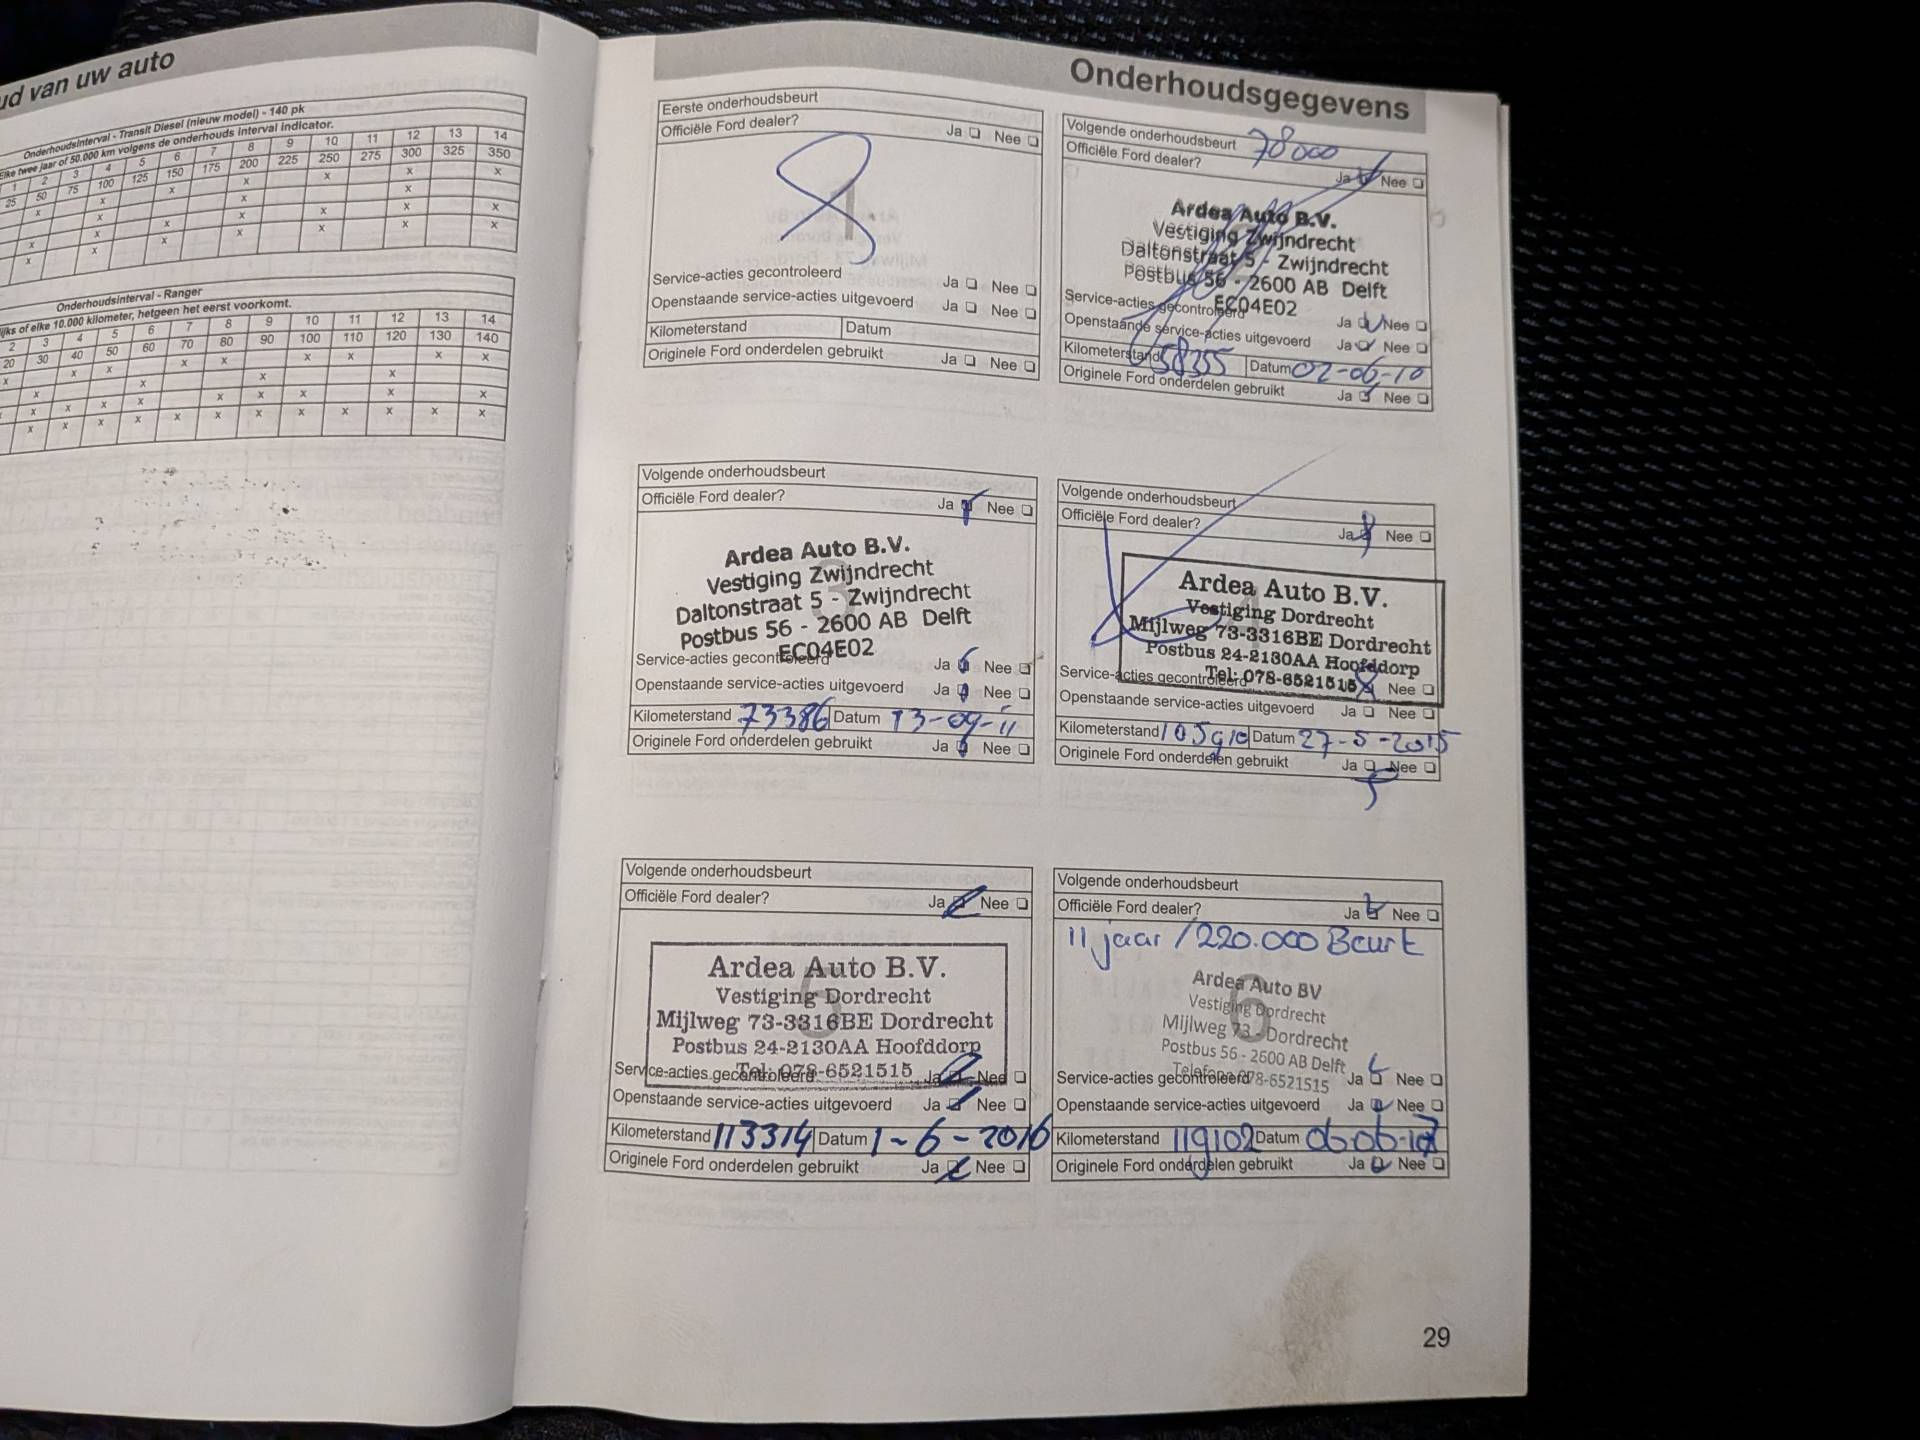 ud van uw auto
Onderhoudsinterval - Transit Diesel (nieuw model) - 140 pk
Elke twee jaar of 50.000 km volgens de onderhouds interval indicator.
1 2 3 4 5 6 7 8 9 10 11 12 13 14
25 50 75 100 125 150 175 200 225 250 275 300 325 350
Onderhoudsinterval - Ranger
ijks of elke 10.000 kilometer, hetgeen het eerst voorkomt.
2 3 4 5 6 7 8 9 10 11 12 13 14
20 30 40 50 60 70 80 90 100 110 120 130 140
Onderhoudsgegevens
Eerste onderhoudsbeurt
Officiële Ford dealer? Ja Nee
1
Service-acties gecontroleerd Ja Nee
Openstaande service-acties uitgevoerd Ja Nee
Kilometerstand Datum
Originele Ford onderdelen gebruikt Ja Nee
Volgende onderhoudsbeurt 78000
Officiële Ford dealer? Ja Nee
Ardea Auto B.V.
Vestiging Zwijndrecht
Daltonstraat 5 - Zwijndrecht
Postbus 56 - 2600 AB Delft
EC04E02
Service-acties gecontroleerd Ja Nee
Openstaande service-acties uitgevoerd Ja Nee
Kilometerstand 58355 Datum 02-06-10
Originele Ford onderdelen gebruikt Ja Nee
Volgende onderhoudsbeurt
Officiële Ford dealer? Ja Nee
3
Ardea Auto B.V.
Vestiging Zwijndrecht
Daltonstraat 5 - Zwijndrecht
Postbus 56 - 2600 AB Delft
EC04E02
Service-acties gecontroleerd Ja Nee
Openstaande service-acties uitgevoerd Ja Nee
Kilometerstand 73386 Datum 13-09-11
Originele Ford onderdelen gebruikt Ja Nee
Volgende onderhoudsbeurt
Officiële Ford dealer? Ja Nee
4
Ardea Auto B.V.
Vestiging Dordrecht
Mijlweg 73-3316BE Dordrecht
Postbus 24-2130AA Hoofddorp
Tel: 078-6521515
Service-acties gecontroleerd Nee
Openstaande service-acties uitgevoerd Ja Nee
Kilometerstand Datum 27-5-2015
Originele Ford onderdelen gebruikt Ja Nee
Volgende onderhoudsbeurt
Officiële Ford dealer? Ja Nee
5
Ardea Auto B.V.
Vestiging Dordrecht
Mijlweg 73-3316BE Dordrecht
Postbus 24-2130AA Hoofddorp
Tel: 078-6521515
Service-acties gecontroleerd Ja Nee
Openstaande service-acties uitgevoerd Ja Nee
Kilometerstand 113314 Datum 1-6-2016
Originele Ford onderdelen gebruikt Ja Nee
Volgende onderhoudsbeurt
Officiële Ford dealer? Ja Nee
11 jaar / 220.000 Beurt
6
Ardea Auto BV
Vestiging Dordrecht
Mijlweg 73 - Dordrecht
Postbus 56 - 2600 AB Delft
Telefoon 078-6521515
Service-acties gecontroleerd Ja Nee
Openstaande service-acties uitgevoerd Ja Nee
Kilometerstand 119102 Datum 06-06-17
Originele Ford onderdelen gebruikt Ja Nee
29